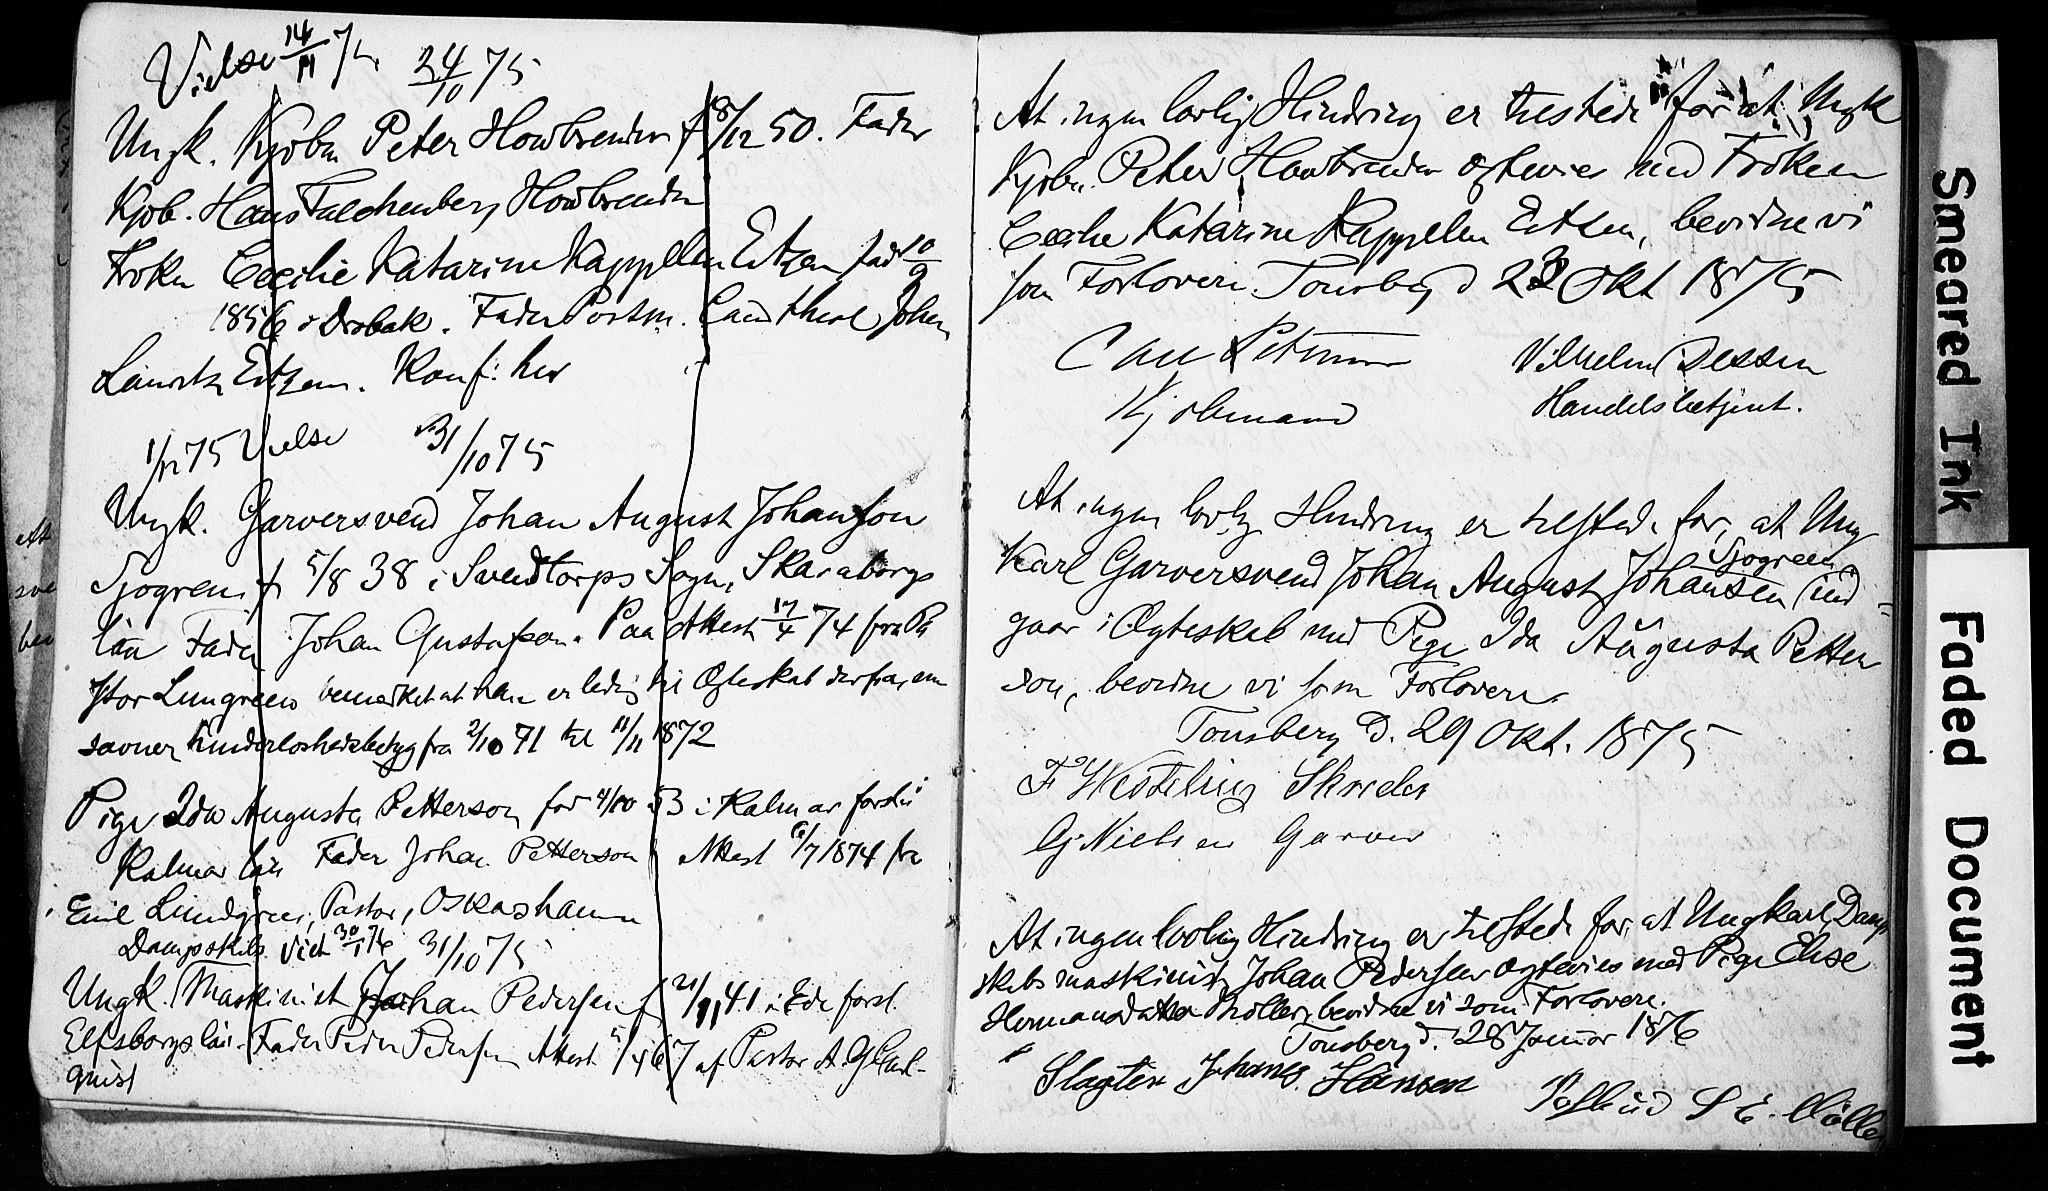 Vielse 14/11 75 24/10 75
Ungk. Kjøbm Peter Howbrender f 8/12 50. Fader
Kjøb. Hans Falchenberg Howbrender
Frøken Cecilie Katarine Kappelen Eitzen født 10/9
1856 i Drøbak. Fader Postm. Cand theol Johan
Lauritz Eitzen. Konf: her
1/12 75 Vielse 31/10 75
Ungk. Garversvend Johan August Johanson
Sjøgren, f 5/8 38 i Svendtorps Sogn, Skaraborgs
län Fader Johan Gustafson. Paa Attest 17/4 74 fra Pa
stor Lungreen bemærket at han er ledig til Ægteskab derfra, en
savner hinderløshedsbetyg fra 2/10 71 til 11/11 1872
Pige Ida Augusta Petterson, fød 4/10 53 i Kalmar forsl.
Kalmar län Fader Johan Petterson, Attest 6/7 1874 fra
Emil Lundgren, Pastor, Oskarshamn
Dampskibs. Viet 30/1 76 31/10 75
Ungk. Maskinist Johan Pedersen f 21/11 41 i Ede forsl.
Elfsborgs län. Fader Peder Pedersen Attest 5/4 67 af Pastor A. G. Carl-
quist
At ingen lovlig Hindring er tilstede for, at Ungk
Kjøbm. Peter Howbrender ægtevies med Frøken
Cecilie Katarine Kappelen Eitzen, bevidne vi
som Forlovere. Tønsberg d 23 Okt 1875
Carl
Vilhelm Dessen
Kjøbmand
Handelsbetjent.
At ingen lovlig Hindring er tilstede for, at Ung
Sjøgreen
Karl Garversvend Johan August Johansen ind-
gaar i Ægteskab med Pige Ida Augusta Petter
son, bevidne vi som Forlovere.
Tønsberg d. 29 Okt. 1875
F Westeling Skræder
G. Nielsen Garver
At ingen lovlig Hindring er tilstede for, at Ungkarl, Damp
skibsmaskinist, Johan Pedersen ægtevies med Pige Elise
Hermansdatter Møller, bevidne vi som Forlovere.
Tønsberg d. 28 Januar 1876
Slagter Johannes Hansen
Postbud S E. Mølle
Smeared Ink
Faded Document